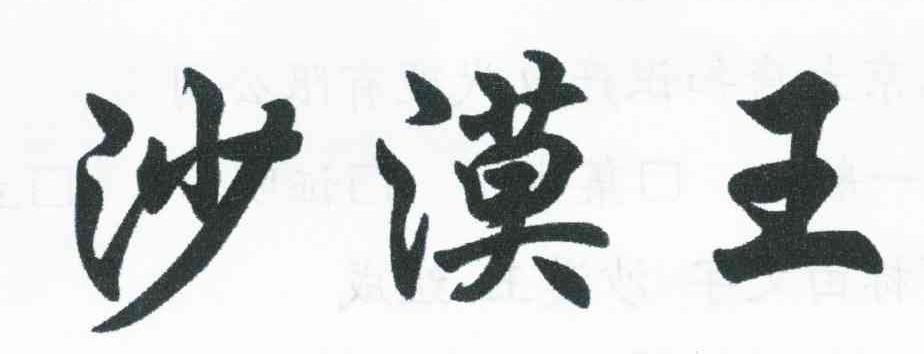 沙漠王